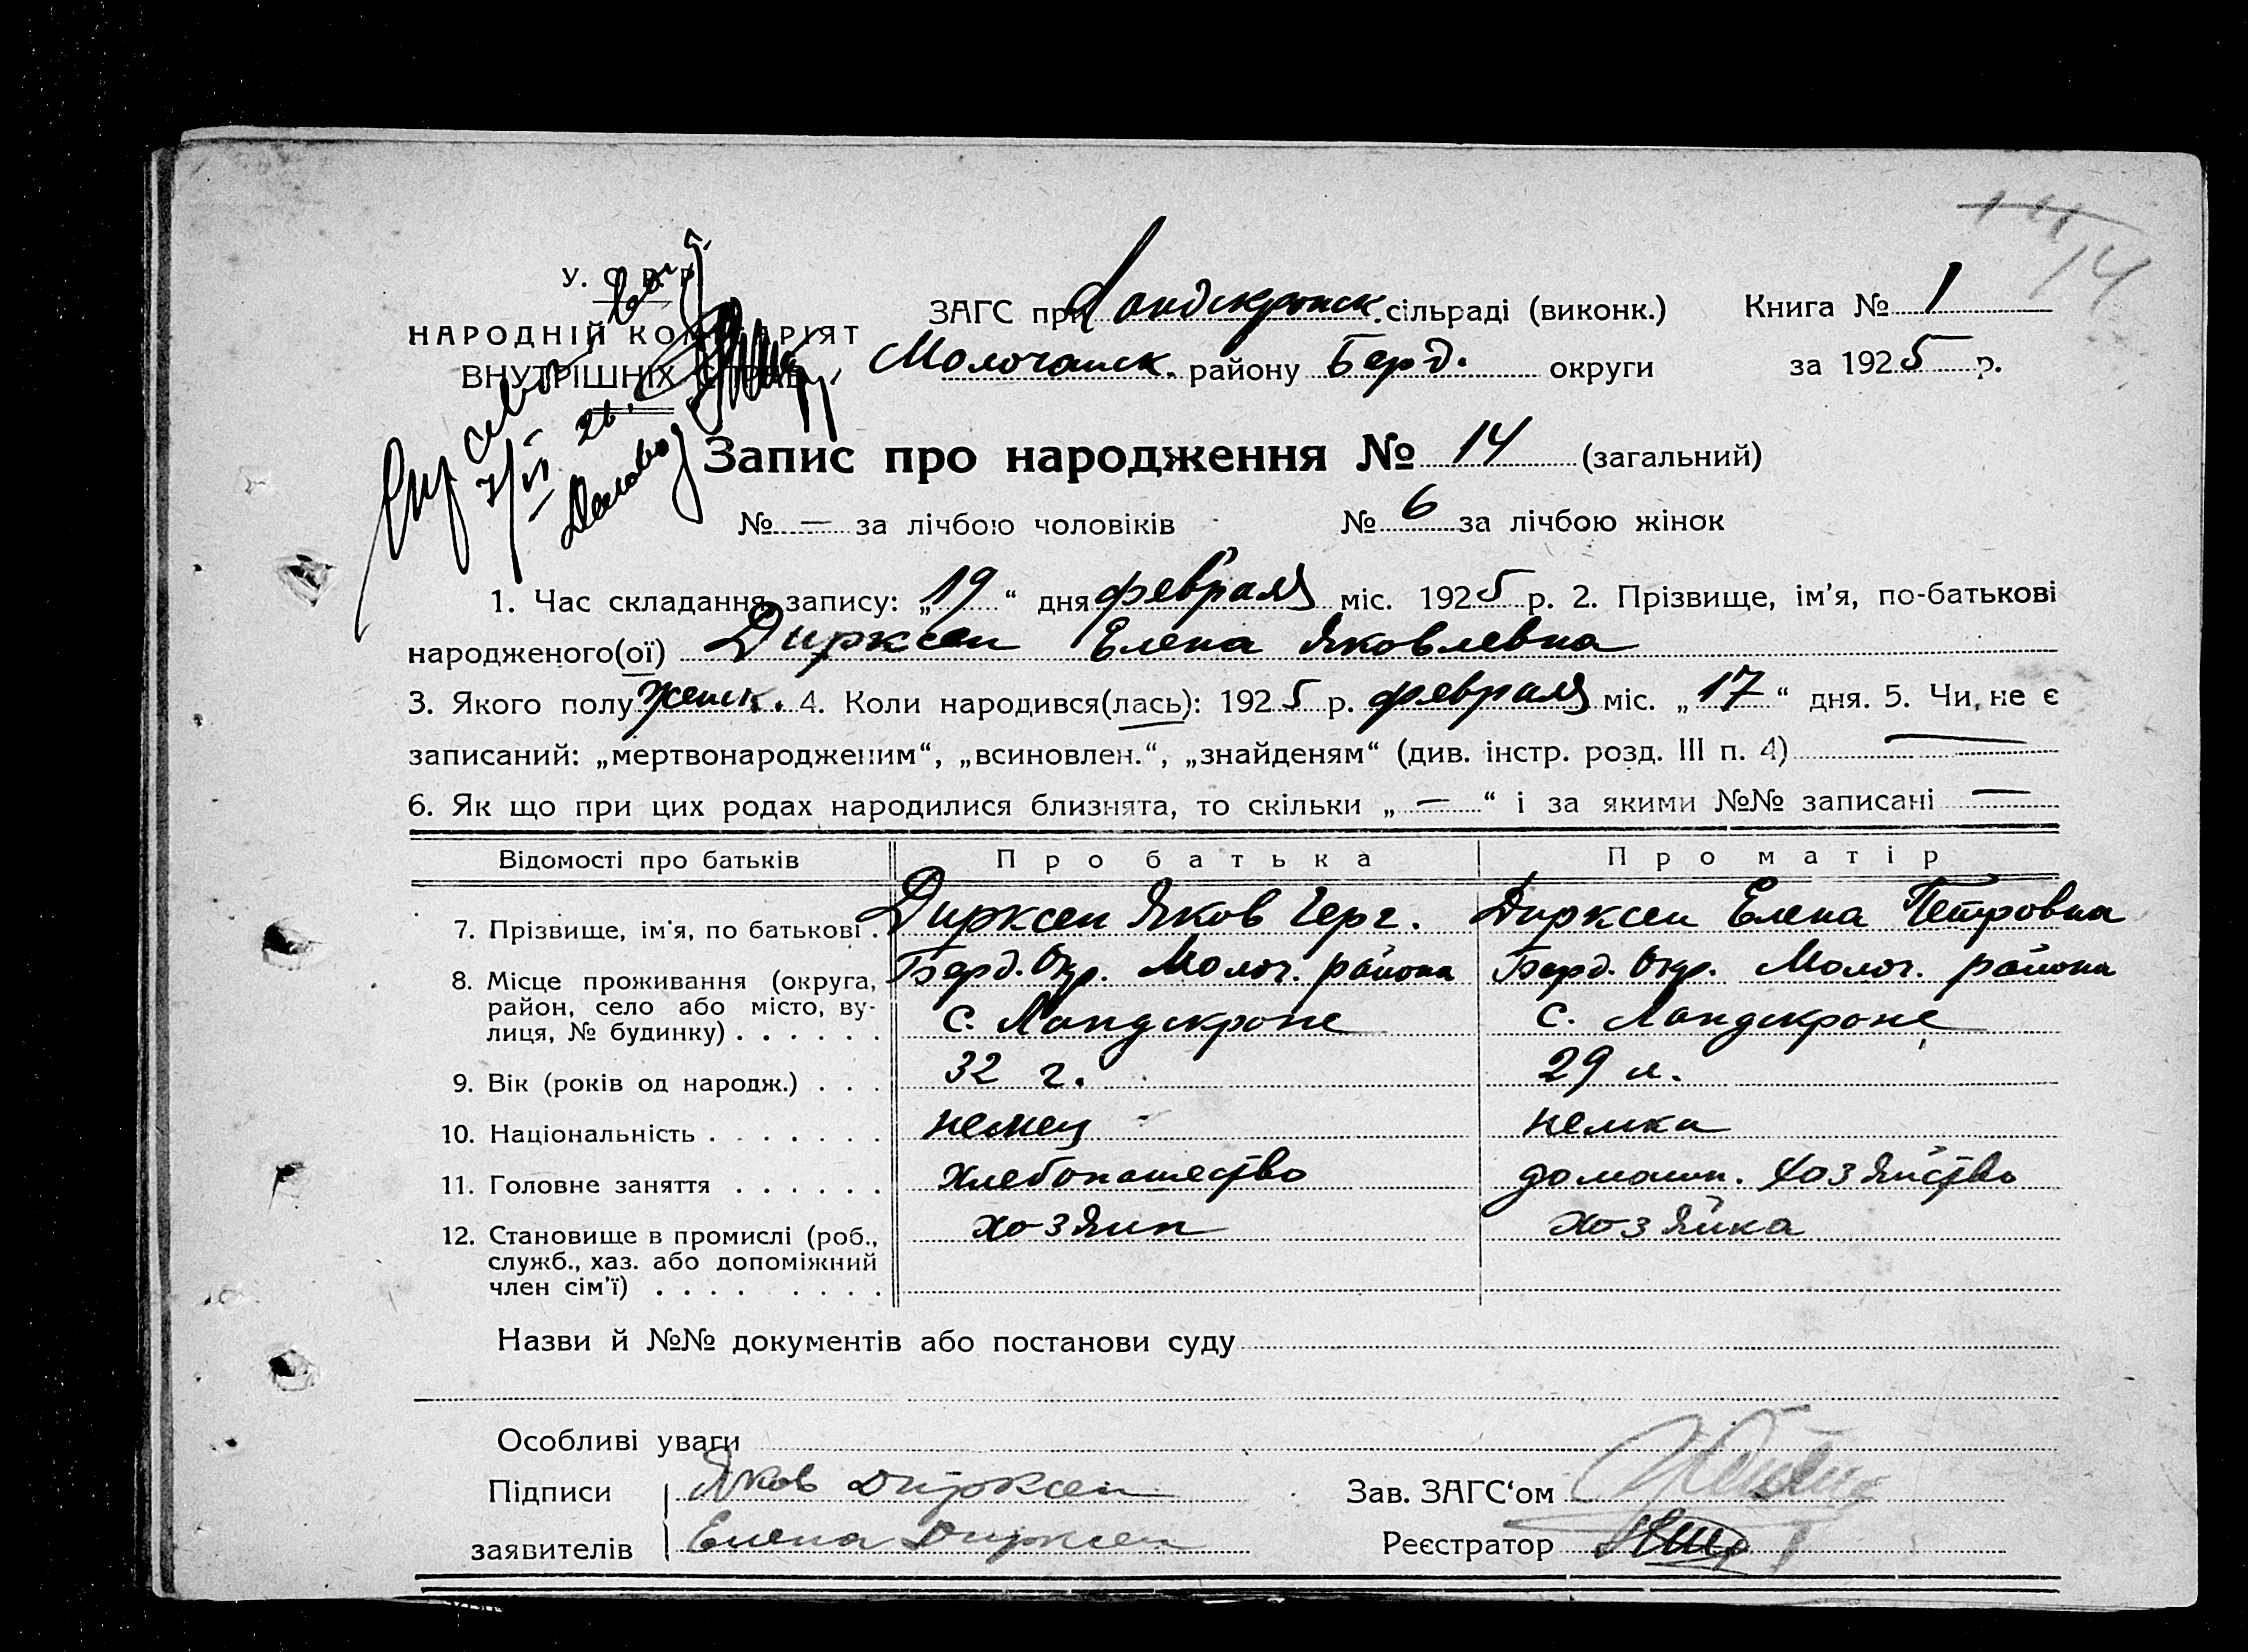 14
14
У. С. Р. Р.
НАРОДНІЙ КОМІСАРІЯТ
ВНУТРІШНІХ СПРАВ
ЗАГС при Ландскронск. сільраді (виконк.) Книга № 1
Молочанск. району Берд. округи за 1925 р.
Запис про народження № 14 (загальний)
№ — за лічбою чоловіків № 6 за лічбою жінок
1. Час складання запису: „19“ дня февраля міс. 1925 р. 2. Прізвище, ім'я, по-батькові
народженого(ої) Дирксен Елена Яковлевна
3. Якого полу женск. 4. Коли народився(лась): 1925 р. февраля міс. „17“ дня. 5. Чи не є
записаний: „мертвонародженим“, „всиновлен.“, „знайденям“ (див. інстр. розд. III п. 4) —
6. Як що при цих родах народилися близнята, то скільки „—“ і за якими №№ записані —
Відомості про батьків Про батька Про матір
7. Прізвище, ім'я, по батькові . Дирксен Яков Герг. Дирксен Елена Петровна
8. Місце проживання (округа, район, село або місто, вулиця, № будинку) . . . . . . Берд. Окр. Молоч. района Берд. Окр. Молоч. района
с. Ландскроне с. Ландскроне
9. Вік (років од народж.) . . . 32 г. 29 л.
10. Національність . . . . . . . немец немка
11. Головне заняття . . . . . . хлебопашество домашн. хозяйство
12. Становище в промислі (роб., служб., хаз. або допоміжний член сім'ї) . . . . . . . . хозяин хозяйка
Назви й №№ документів або постанови суду
Особливі уваги
Підписи Яков Дирксен Зав. ЗАГС'ом
заявителів Елена Дирксен Реєстратор